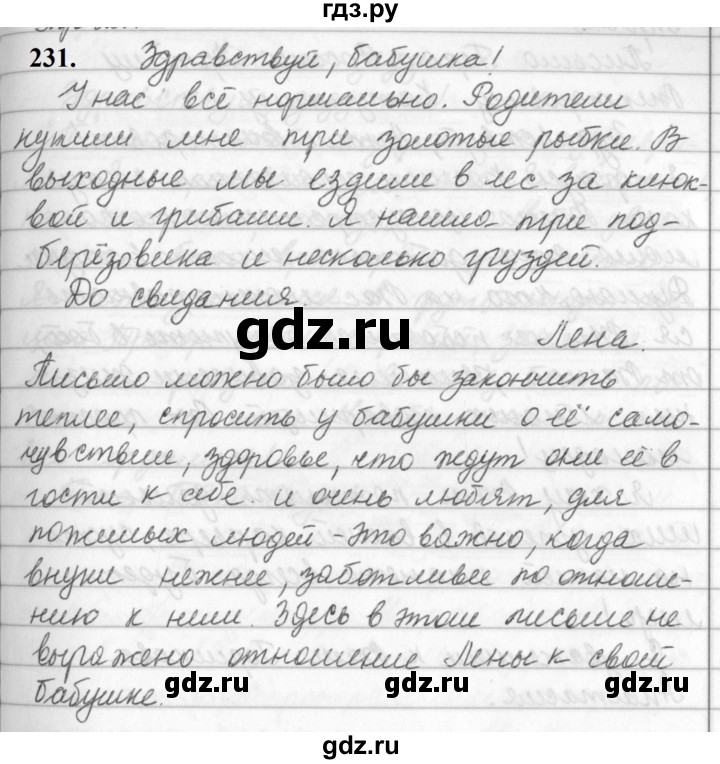 гдз.ру
231. Здравствуй, бабушка!
У нас всё нормально. Родители
купили мне три золотые рыбки. В
выходные мы ездили в лес за клюк-
вой и грибами. Я нашла три под-
берёзовика и несколько груздей.
До свидания.
gdz.ru
Лена.
Письмо можно было бы закончить
теплее, спросить у бабушки о её само-
чувствии, здоровье, что ждут они её в
гости к себе и очень любят, для
пожилых людей - это важно, когда
внуки нежнее, заботливее по отноше-
нию к ним. Здесь в этом письме не
выражено отношение Лены к свой
бабушке.
gdz.ru gdz.ru
gdz.ru